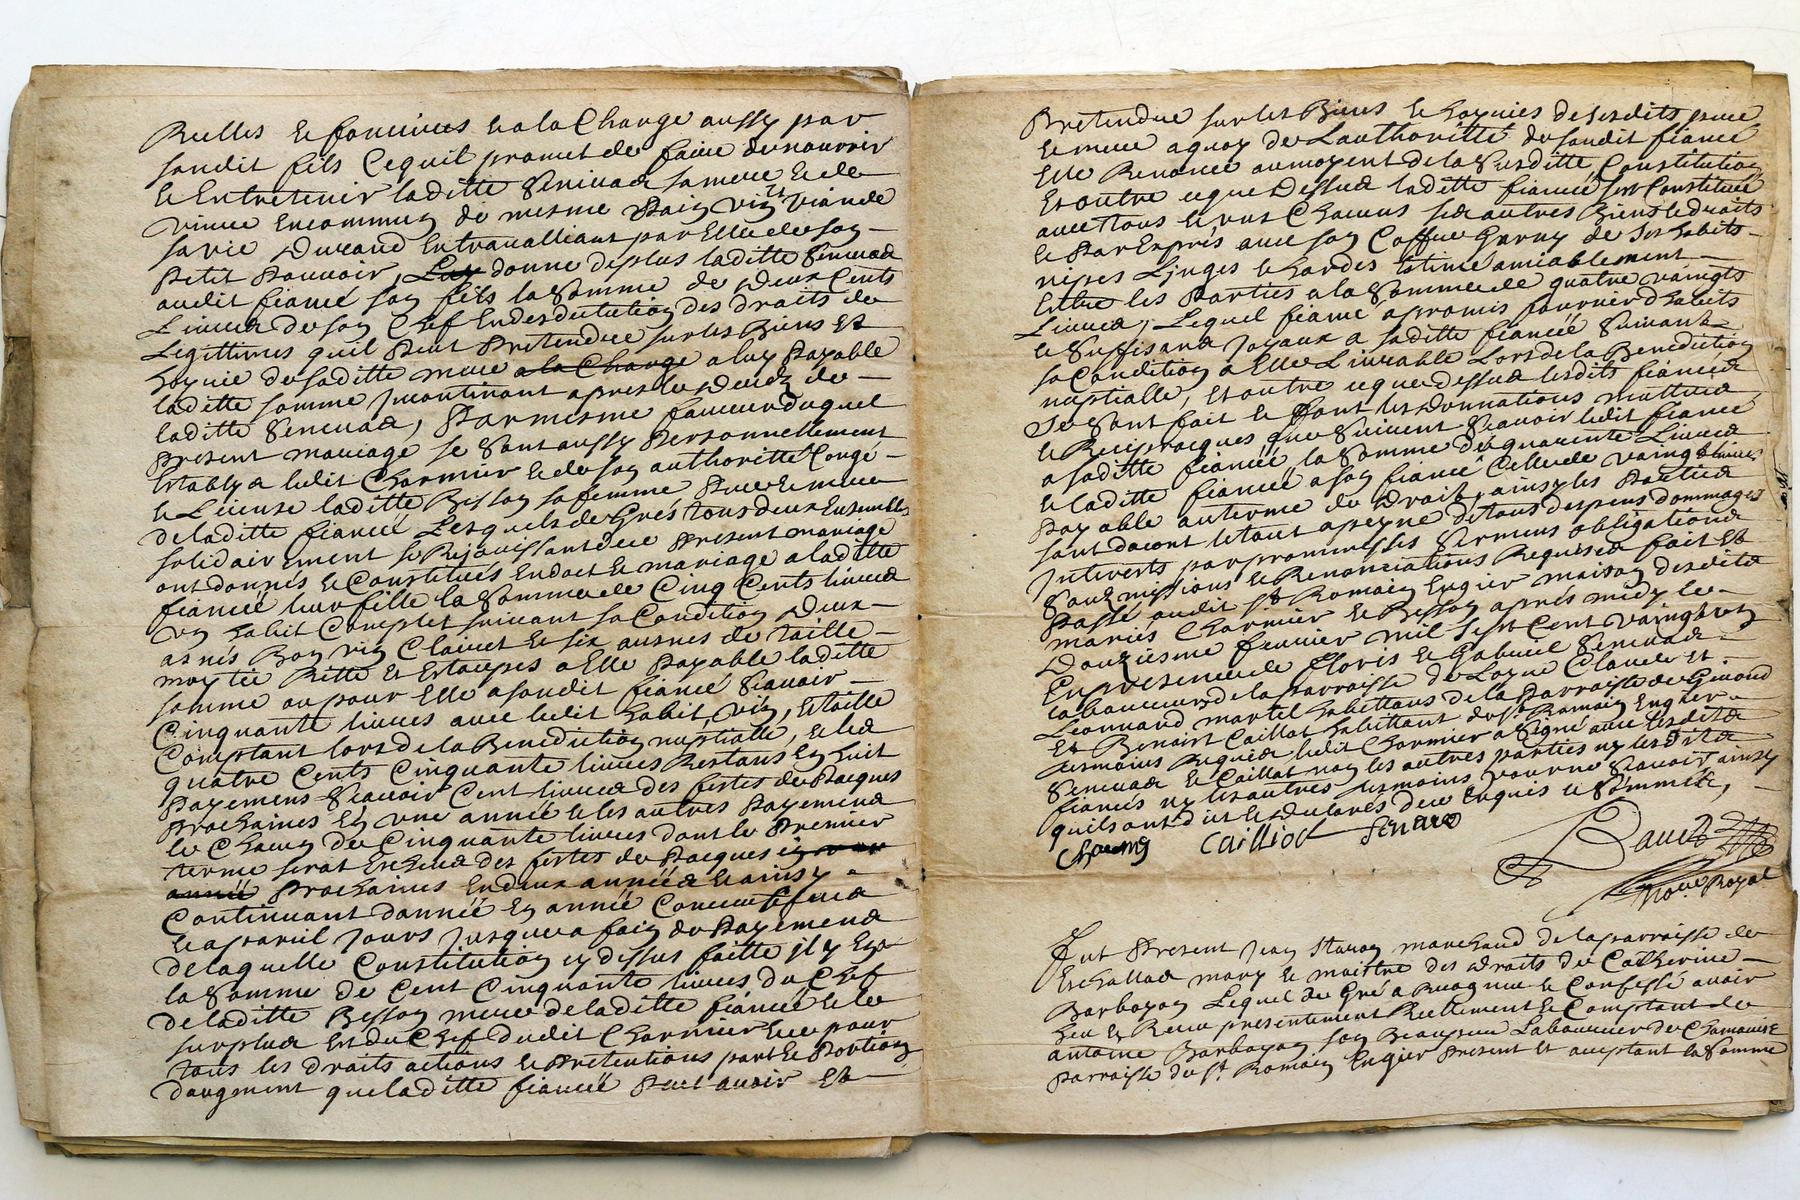 Réelles et foncieres et a la Charge aussy par
sondit fils Cequil promet de faire de nourrir
et Entretenir laditte Seneuas sa mere et de
vivre Encommun de mesme pain vin et viande
sa vie Durand En travailliant par Elle de son
Petit Pouvoir, donne deplus laditte Seneuas
audit fiancé son fils la Somme de Deux Cents
Livres de son Chef des droits de
Legittimes quil peut Pretendre sur les Biens et
hoyrie de saditte mere a la Charge a luy payable
laditte somme Jncontinant apres le Decéz de
laditte Seneuas, Par mesme faveur duquel
Present mariage se sont aussy Personnellement
Establys ledit Charmier et de son authoritté Congé
et License laditte Besson sa femme Pere et mere
de laditte fiancée Lesquels de Grés tous deux Ensembles
solidairement se Rejouissant de ce Present mariage
ont donnés et Constitués En dot et mariage a laditte
fianceé leur fille la Somme de Cinq Cents livres
un habit Complet suivant sa Condition Deux
asnés Bon vin Clairet et six ausnes de Taille
moytié Ritte et Estoupes a Elle payable laditte
somme ou pour Elle a sondit fiancé Sçavoir
Cinquante livres avec ledit habit, vin, et taille
Comptant lors de la Benediction nuptialle, et les
quatre Cents Cinquante livres Restans En huit
Payemens Sçavoir Cent livres des festes de Pacques
Prochaines En une année et les autres Payemens
de Chacun de Cinquante livres dont le Premier
terme serat Escheus des festes de Pacques
année Prochaines En deux années et ainsy
Continuant dannée En année Consecutifves
et a pareil Jours Jusques a fain de Payemens
de laquelle Constitution cy dessus faitte jl y En a
la Somme de Cent Cinquante livres du Chef
de laditte Besson mere de laditte fiancée et le
surplus Est du Chef dudit Charmier et ce pour
tous les droits actions et Pretentions part et Portion
daugment que laditte fianceé peut avoir et
Pretendre sur les Biens et hoyries de sesdits pere
et mere a quoy de Lauthoritté de sondit fiancé
Elle Renonce aumoyent de la Susditte Constitution
Et outre ce que Dessus laditte fiancée sest Constituée
avec tous et uns Chacuns ses autres Biens et droits
et Par Exprés avec son Coffre Garny de ses habits
nipes Linges et hardes Estimé amiablement
Entre les Parties a la Somme de quatre vaingts
Livres, Lequel fiancé a promis fournir dhabits
et Suffisans Joyaux a saditte fianceé Suivant
sa Condition a Elle Livrable Lors de la Benediction
nuptialle, Et outre ce que dessus lesdits fiancés
Se sont fait et font les donnations mutuës
et Reciproques que Suivent Sçavoir ledit fiancé
a saditte fiancée la somme de quarente Livres
et laditte fiancée a son fiancé Celle de vaingt livres
Payable au terme de Droit, ainsy les Parties
sont dacort le tout a peyne de tous despens dommages
Jnterests par promesses Sermens obligations
Soubmissions et Renonciations Requises fait Et
Passé audit St Romain En gier maison desdits
mariés Charmier et Besson aprés midy le
Douziesme feuvrier mil Sept Cent vaingt
En presence de Floris et Gabriel Seneuas
laboureurs de la parroisse de Loyre Claude et
Leonnard martel habittans de la Parroisse de Givord
Et Benoist Caillot habittant de St Romain En gier
tesmoins Requis ledit Charmier a Signé avec lesdits
Seneuas et Caillot non les autres parties ny lesdits
fiancés ny les autres tesmoins pour ne Sçavoir ainsy
quils ont dit et declarés de ce Enquis et Sommés,
Cailliot Seneuas
David
Nore Royal
Fut Present Jean marchand de la parroisse de
Eschallas mary et maittre des droits de Catherine
Barbayon Lequel de Gré a Recognue et Confessé avoir
heu et Receu presentement Reellement et Comptant de
antoine Barbayon son Beaupere Laboureur de
parroisse de St Romain En gier Present et aceptant la Somme